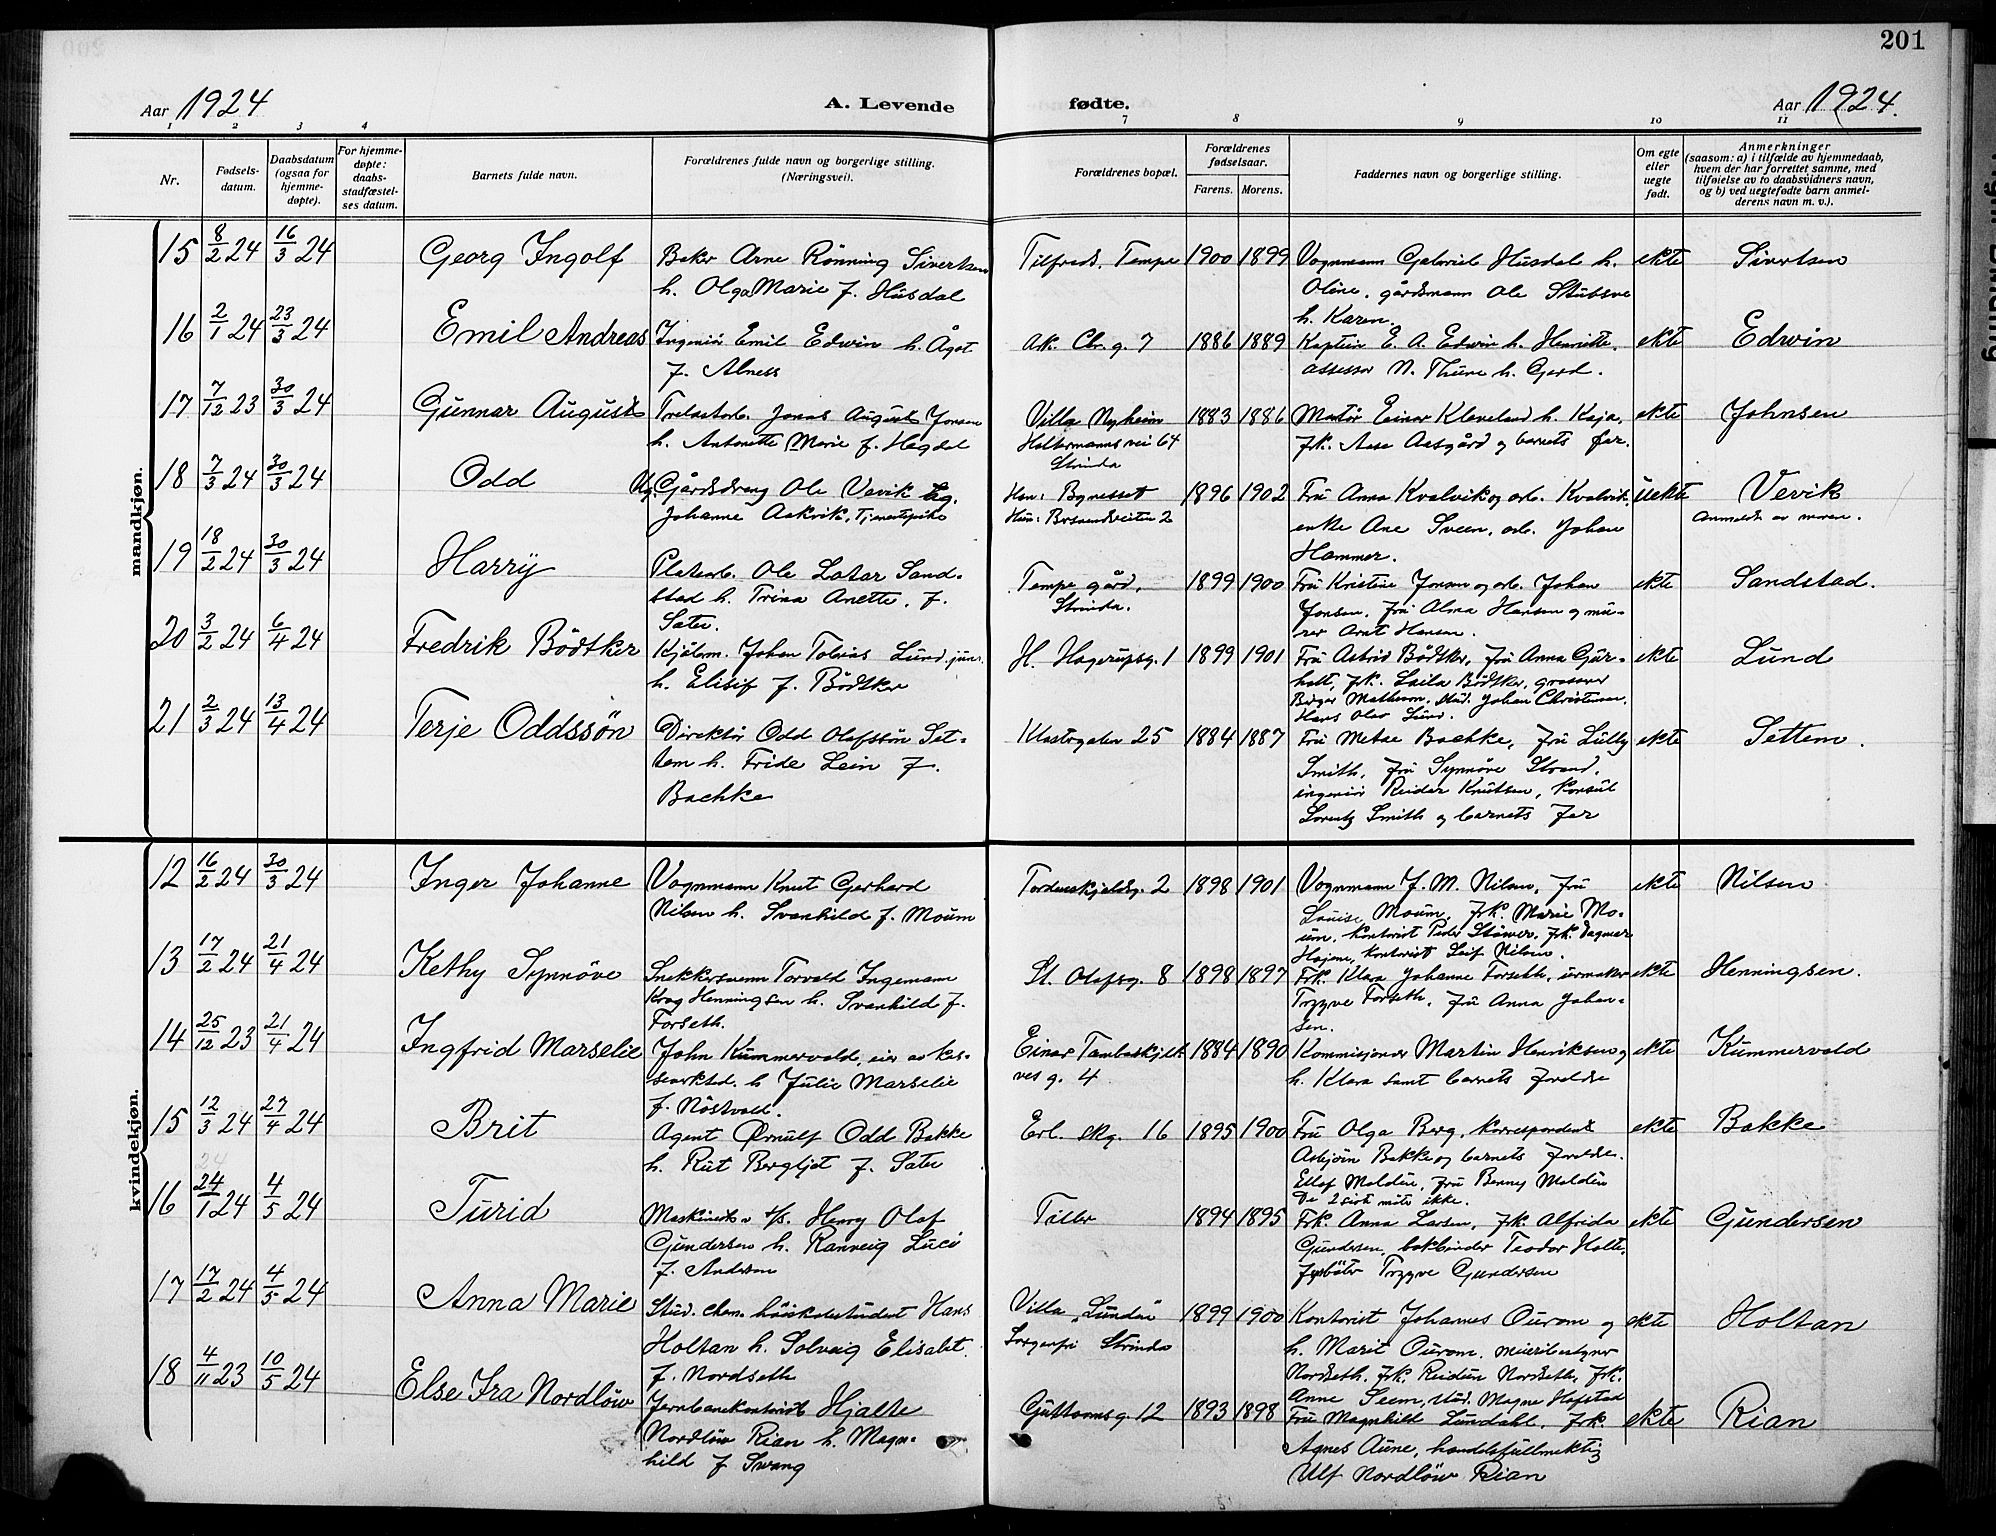 201
Aar 1924
A. Levende fødte.
Aar 1924.
1 2 3 4 7 8 9 10 11
Nr.
Fødsels-
datum.
Daabsdatum
(ogsaa for
hjemme-
døpte).
For hjemme-
døpte:
daabs-
stadfæstel-
ses datum.
Barnets fulde navn.
Forældrenes fulde navn og borgerlige stilling.
(Næringsvei).
Forældrenes bopæl.
Forældrenes
fødselsaar.
Farens. Morens.
Faddernes navn og borgerlige stilling.
Om egte
eller
uegte
født.
Anmerkninger
(saasom: a) i tilfælde av hjemmedaab,
hvem der har forrettet samme, med
tilføielse av to daabsvidners navn,
og b) ved uegtefødte barn anmel-
derens navn m. v.).
mandkjøn.
15 8/2 24 16/3 24 Georg Ingolf Baker Arne Rönning Sivertsen Tilfreds. Tempe 1900 1899 Vognmann Gabriel Husdal h. ekte Sivertsen
h. Olga Marie f. Husdal Oline, gårdsmann Ole Stubsve
h. Karen.
16 2/1 24 23/3 24 Emil Andreas Ingeniör Emil Edwin h. Ågot Ask. Chr. g. 7 1886 1889 Kaptein E. A. Edwin h. Henriette, ekte Edwin
f. Alness assessor N. Thune h. Gerd.
17 7/12 23 30/3 24 Gunnar August Trelastarb. Jonas August Jonsen Villa Nyheim 1883 1886 Montör Einar Kleveland h. Kaja, ekte Johnsen
h. Antonette Marie f. Hegdal Holtermanns vei 64 frk. Aase Aasgård og barnets far.
Strinda
18 7/3 24 30/3 24 Odd Ug. Gårdsdreng Ole Vevik Ug. Han: Bynesset 1896 1902 Fru Anna Kvalvik og arb. Kvalvik, uekte Vevik
Johanne Askvik, Tjenestepike Hun: Brandveiten 2 enke Ane Sveen, arb. Johan Anmeldt av moren.
Hammer.
19 18/2 24 30/3 24 Harry Platearb. Ole Lotar Sand- Tempe gård, 1899 1900 Fru Kristine Jonsen og arb. Johan ekte Sandstad.
stad h. Trina Anette. f. Strinda. Jonsen, fru Alma Hansen og mu-
Sæter. rer Arnt Hansen.
20 3/2 24 6/4 24 Fredrik Bödtker Kjölem. Johan Tobias Lund jun. H. Hagerupsg. 1 1899 1901 Fru Astrid Bödtker, fru Anna Gur- ekte Lund
h. Elisif f. Bödtker holt, frk. Laila Bödtker, grosserer
Birger Mathesen, stud. Johan Christensen,
Hans Olav Lund.
21 2/3 24 13/4 24 Terje Oddssön Direktör Odd Olafssön Set- Klostergaten 25 1884 1887 Fru Metae Bachke, fru Lully ekte Settem.
tem h. Fride Lein f. Smith, fru Synnöve Strand,
Bachke ingeniör Reidar Knutsen, konsul
Lorentz Smith og barnets far
kvindekjøn.
12 16/2 24 30/3 24 Inger Johanne Vognmann Knut Gerhard Tordenskjoldsg. 2 1898 1901 Vognmann J. M. Nilsen, fru ekte Nilsen
Nilsen h. Svanhild f. Moum Louise Moum, frk. Marie Mo-
um, kontorist Peder Stamer, frk. Dagmar
Hojem, kontorist Leif Nilsen.
13 17/2 24 21/4 24 Kethy Synnöve Snekkersvenn Torvald Ingemann St. Olafsg. 8 1898 1897 Frk. Klara Johanne Forseth, urmaker ekte Henningsen.
Krog Henningsen h. Svanhild f. Trygve Forseth, fru Anna Johan-
Forseth. sen.
14 25/12 23 21/4 24 Ingfrid Marselie John Kummervold, eier av kas- Einar Tambaskjel- 1884 1890 Kommisjonær Martin Henriksen og ekte Kummervold
severksted. h Julie Marselie ves g. 4 h. Klara samt barnets foreldre
f. Nöstvold.
15 12/3 24 27/4 24 Brit Agent Ørnulf Odd Bakke Erl. Skg. 16 1895 1900 Fru Olga Berg, korrespondent ekte Bakke
h. Rut Bergljot f. Sæter Asbjörn Bakke og barnets foreldre.
Ellef Moldén, fru Benny Moldén
De 2 sist møtte ikke.
16 24/1 24 4/5 24 Turid Maskinist v. f/s. Henry Olaf Tiller 1894 1895 Frk. Anna Larsen, frk. Alfrida ekte Gundersen
Gundersen h. Ranveig Luci Gundersen, bokbinder Teodor Holte,
f. Andersen fyrböter Trygve Gundersen
17 17/2 24 4/5 24 Anna Marie Stud. chem. höiskolestudent Hans Villa "Lundar" 1899 1900 Kontorist Johannes Ourom og ekte Holtan
Holtan h. Solveig Elisabet. Sorgenfri Strinda h. Marit Ourom, meieribestyrer
f. Nordseth Nordseth, frk. Reidun Nordseth, frk.
Anne Seem, stud. Magne Hofstad
18 4/11 23 10/5 24 Else Ira Nordlöw Jernbanekontorist Hjalte Guttormsg. 12 1893 1898 Fru Magnhild Lundahl, frk. ekte Rian
Nordlöw Rian h. Magn- Agnes Aune, handelsfullmektig
hild f Svang Ulf Nordlöw Rian